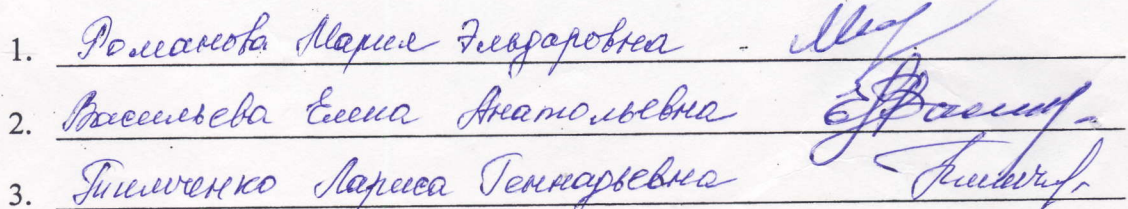 1. Романова Мария Эльдаровна -
2. Васильева Елена Анатольевна
3. Тимченко Лариса Геннадьевна